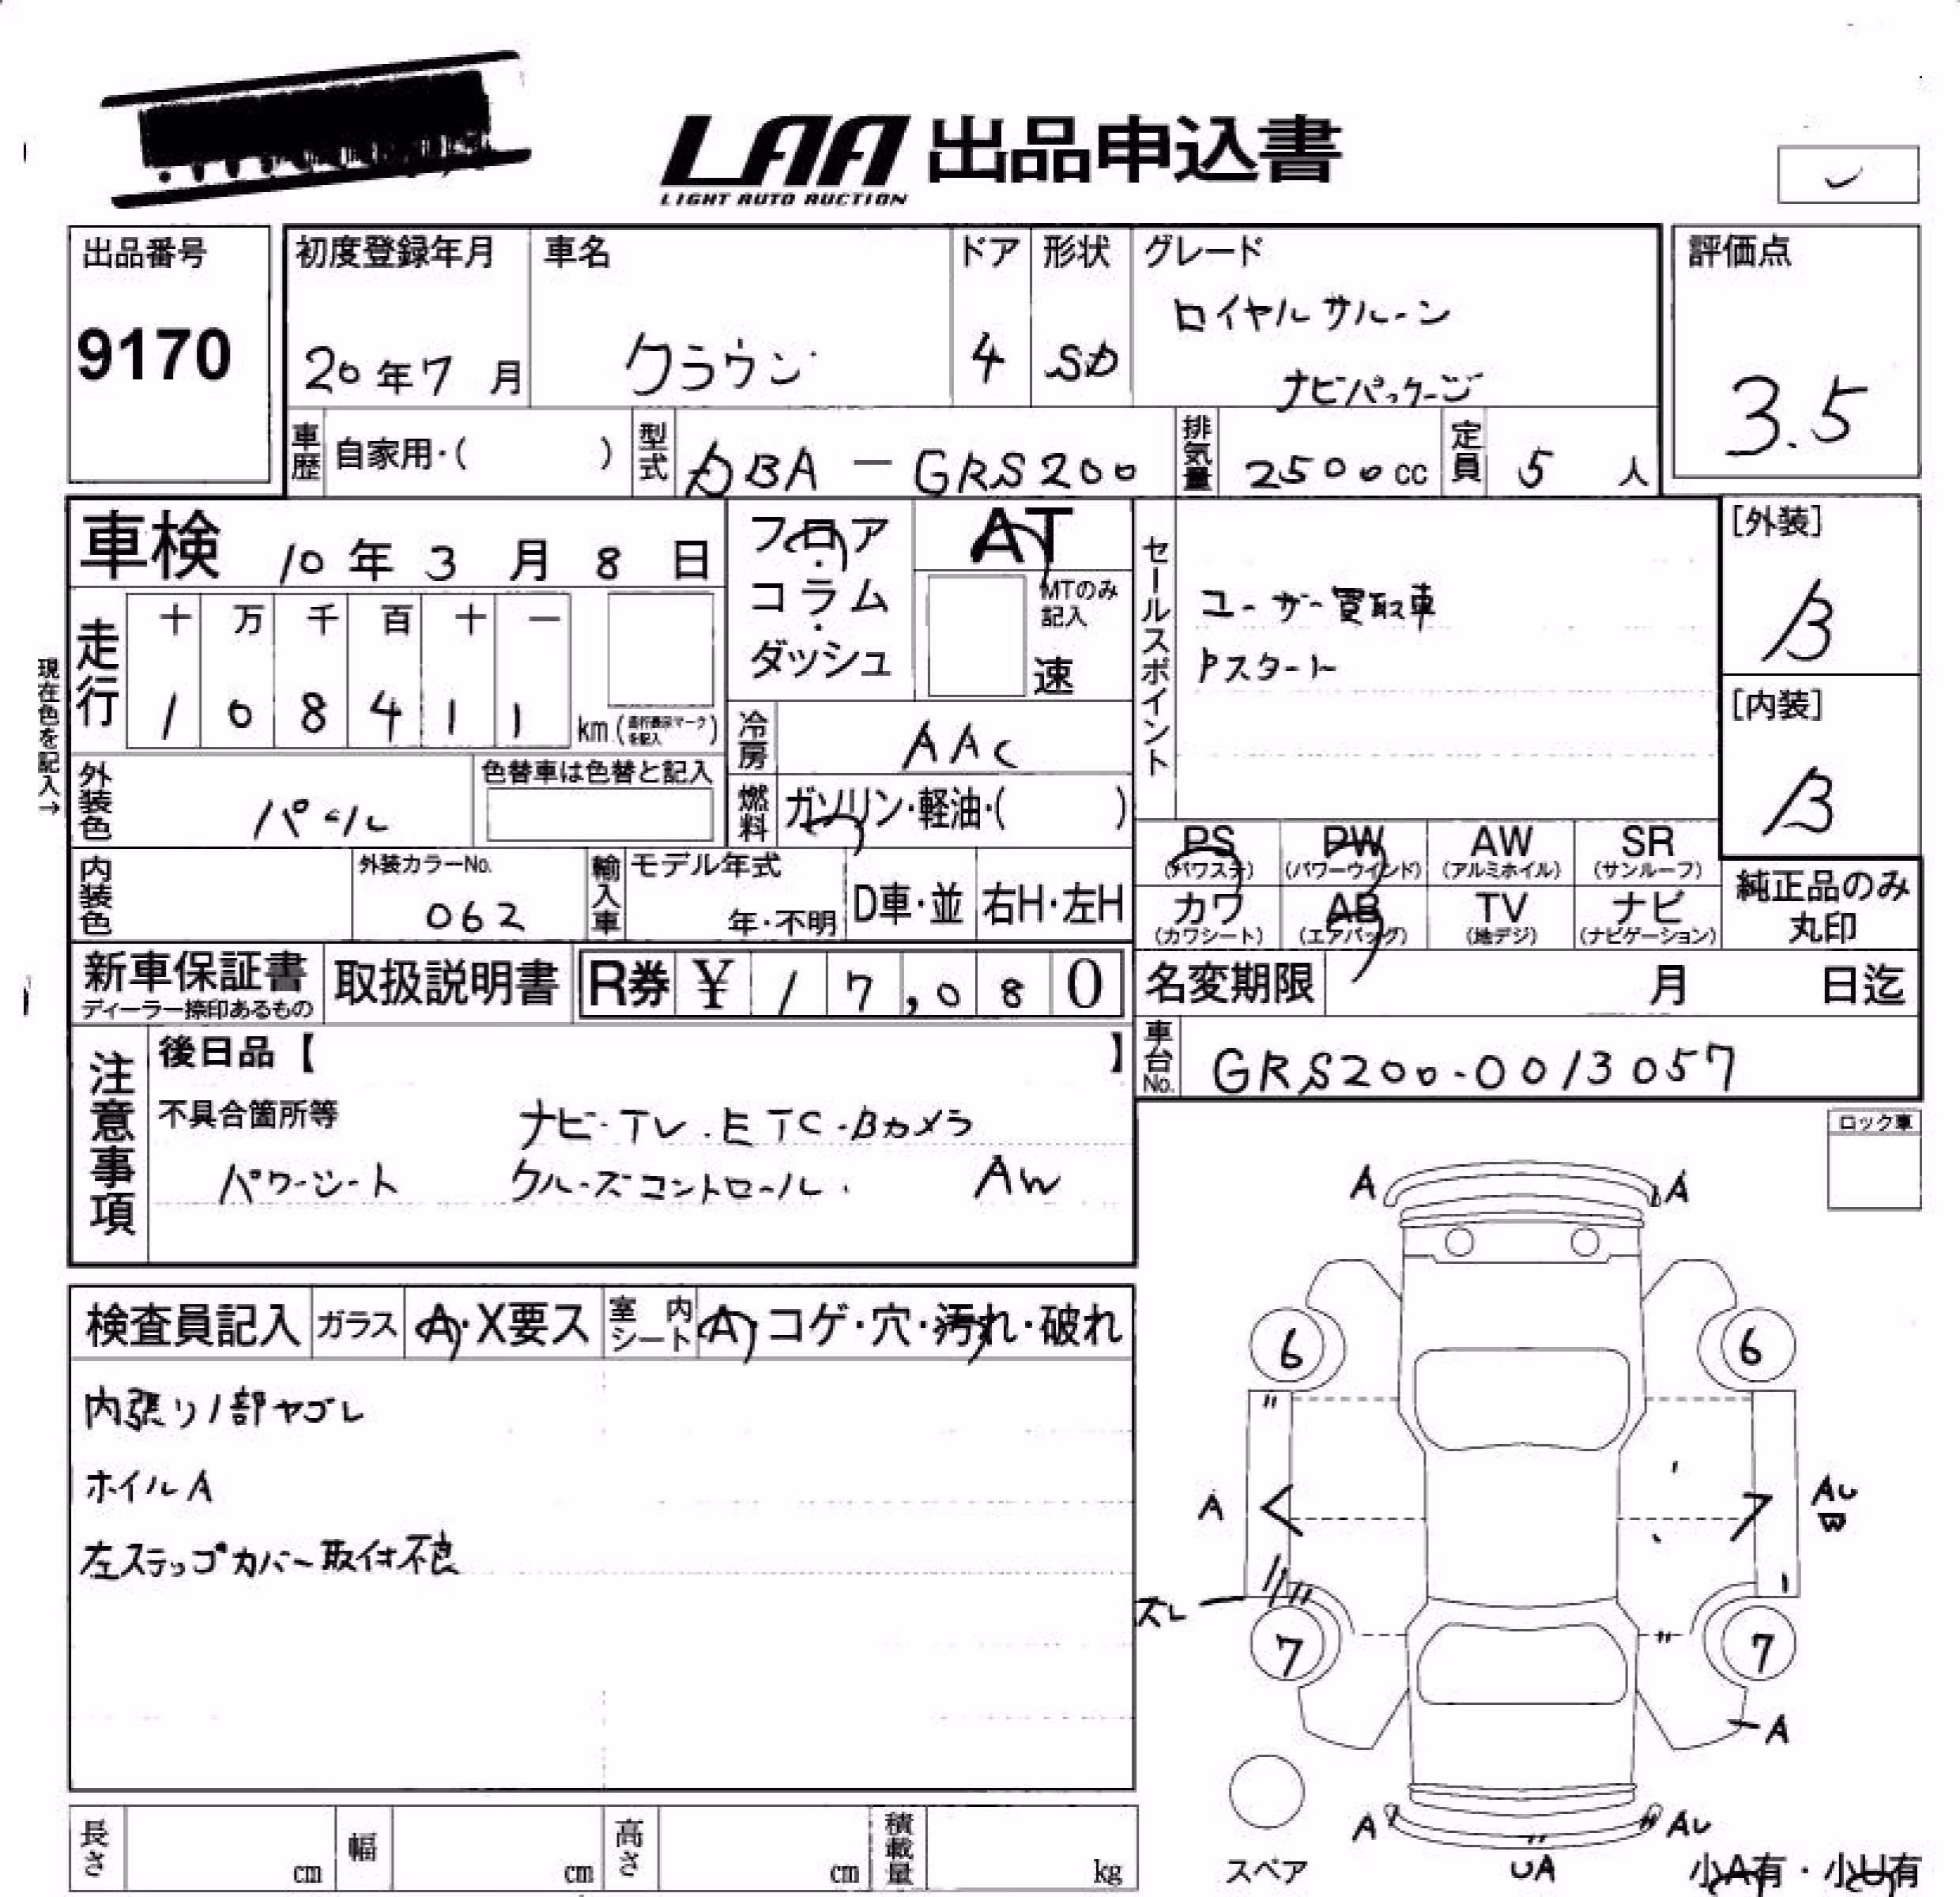 LAA 出品申込書
LIGHT AUTO AUCTION
出品番号
9170
初度登録年月
20年7月
車名
クラウン
ドア
4
形状
SD
グレード
ロイヤルサルーン
ナビパッケージ
評価点
3.5
車歴 自家用・( )
型式 DBA-GRS200
排気量 2500cc
定員 5人
車検 10年3月8日
フロア・コラム・ダッシュ
AT
MTのみ記入
速
セールスポイント
ユーザー買取車
Pスタート
[外装]
B
[内装]
B
現在色を記入→
走行
十 万 千 百 十 一
1 0 8 4 1 1 km(走行表示マークを記入)
冷房 AAC
外装色 パール
色替車は色替と記入
燃料 ガソリン・軽油・( )
PS (パワステ)
PW (パワーウインド)
AW (アルミホイル)
SR (サンルーフ)
カワ (カワシート)
AB (エアバッグ)
TV (地デジ)
ナビ (ナビゲーション)
純正品のみ丸印
内装色
外装カラーNo.
062
輸入車
モデル年式
年・不明
D車・並
右H・左H
新車保証書
ディーラー捺印あるもの
取扱説明書
R券 ¥ 17,080
名変期限 月 日迄
車台No. GRS200-0013057
注意事項
後日品【 】
不具合箇所等
ナビ・TV・ETC・Bカメラ
パワーシート クルーズコントロール・ AW
ロック車
検査員記入
ガラス A・X要ス
室内シート A・コゲ・穴・汚れ・破れ
内張り1部ヤブレ
ホイルA
左ステップカバー取付不良
A A
6 6
A
AU
W
ズレ
7 7
A
A AU
UA
スペア
小A有・小U有
長さ cm
幅 cm
高さ cm
積載量 kg